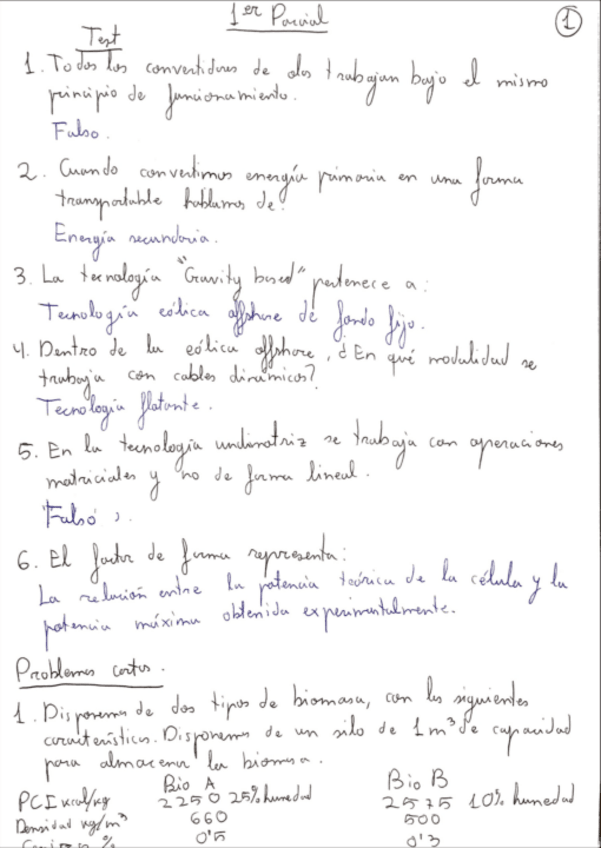 1er Parcial
1
Test
1. Todos los convertidores de olas trabajan bajo el mismo
principio de funcionamiento.
Falso.
2. Cuando convertimos energía primaria en una forma
transportable hablamos de:
Energía secundaria.
3. La tecnología "Gravity based" pertenece a:
Tecnología eólica offshore de fondo fijo.
4. Dentro de la eólica offshore, ¿En qué modalidad se
trabaja con cables dinámicos?
Tecnología flotante.
5. En la tecnología undimotriz se trabaja con operaciones
matriciales y no de forma lineal.
Falso
6. El factor de forma representa:
La relación entre la potencia teórica de la célula y la
potencia máxima obtenida experimentalmente.
Problemas cortos.
1. Disponemos de dos tipos de biomasa, con las siguientes
características. Disponemos de un silo de 1 m³ de capacidad
para almacenar la biomasa.
Bio A Bio B
PCI kcal/kg 2250 25% humedad 2575 10% humedad
Densidad kg/m³ 660 500
Cenizas % 0'5 0'3